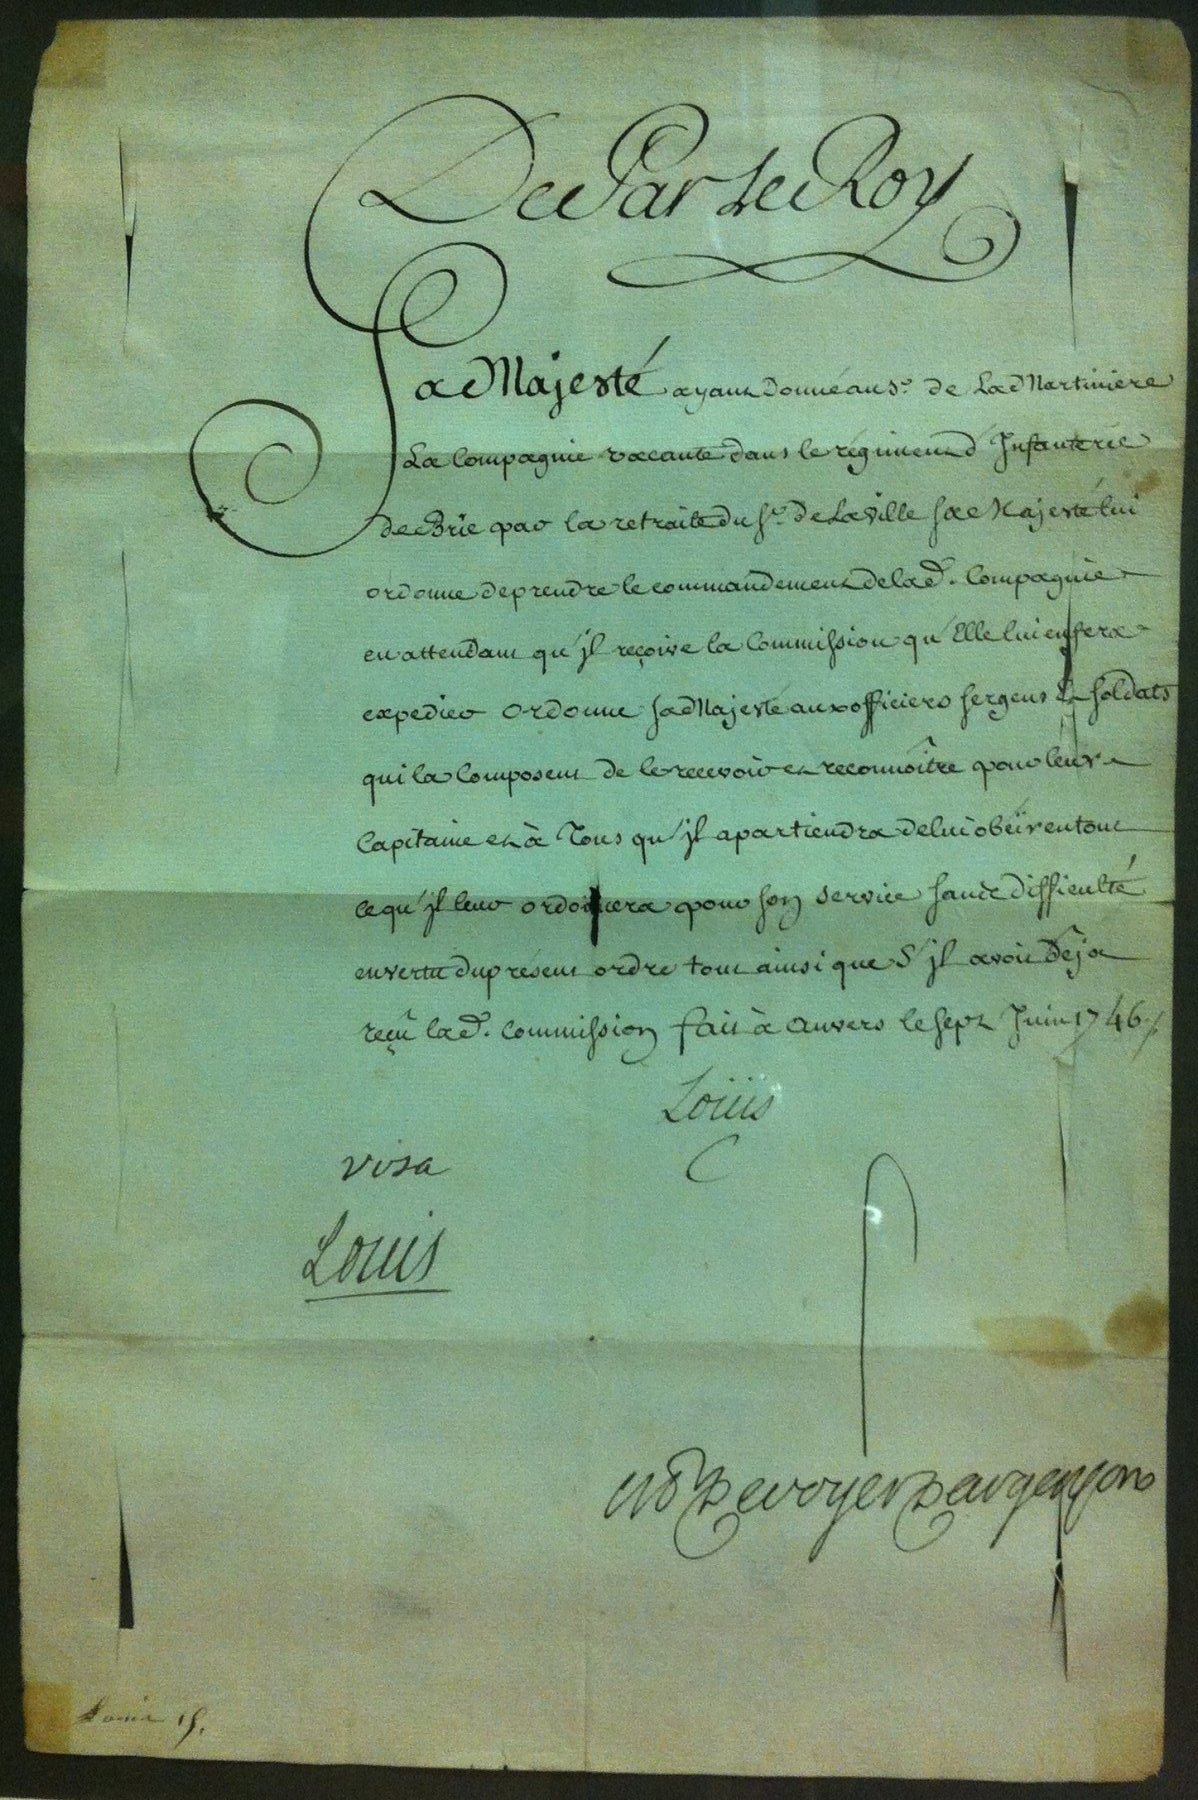 De Par Le Roy
Sa Majesté ayant Donné au Sr. de La Martiniere
La Compagnie vacante dans le régiment d'Infanterie
de Brie par la retraite du Sr. de Laville Sa Majesté lui
ordonne de prendre le commandement de lad. Compagnie
en attendant qu'jl reçoive la Commission qu'Elle lui en fera
expedier ordonne Sa Majesté aux officiers sergens et soldats
qui la Composent de le recevoir et reconnoître pour leur
Capitaine et à Tous qu'jl apartiendra de lui obéir en tout
ce qu'jl leur ordonnera pour son service sans difficulté
en vertu du présent ordre tout ainsi que s'jl avoit Déja
reçû lad. Commission fait à Anvers le sept Juin 1746 ./.
Louis
visa
Louis
M D Devoyer Dargenson
Louis 15.